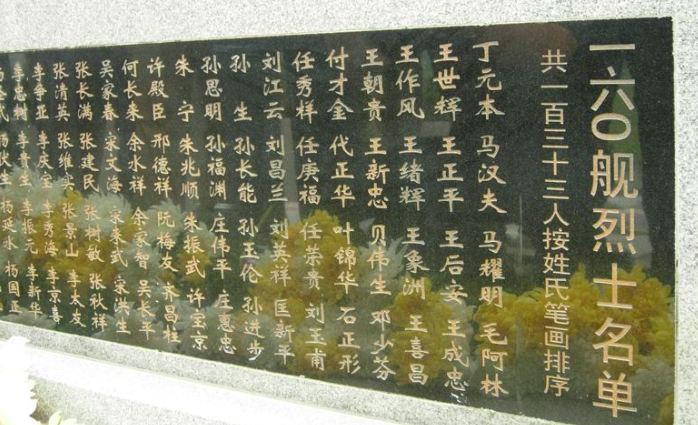 一六〇舰烈士名单
共一百三十三人按姓氏笔画排序
丁元本 马汉夫 马耀明 毛阿林
王世辉 王正平 王后安 王成忠
王作风 王绪辉 王象洲 王喜昌
王朝贵 王新忠 贝伟生 邓少芬
付才金 代正华 叶锦华 石正形
任秀样 任庚福 任荣贵 刘玉甫
刘江云 刘昌兰 刘英祥 匡新平
孙生 孙长能 孙玉伦 孙进步
孙思明 孙福渊 庄伟平 庄惠忠
朱宁 朱兆顺 朱振武 许宝京
许殿臣 邢德祥 阮梅友 齐昌桂
何长来 余水祥 余家智 吴长平
吴家春 宋文海 宋来武 宋洪生
张长满 张建民 张树敏 张秋祥
张清英 张维 张景山 李太友
李争亚 李庆宝 李秀海 李京喜
李忠树 李贵生 李振元 李新华
杨延水 杨国